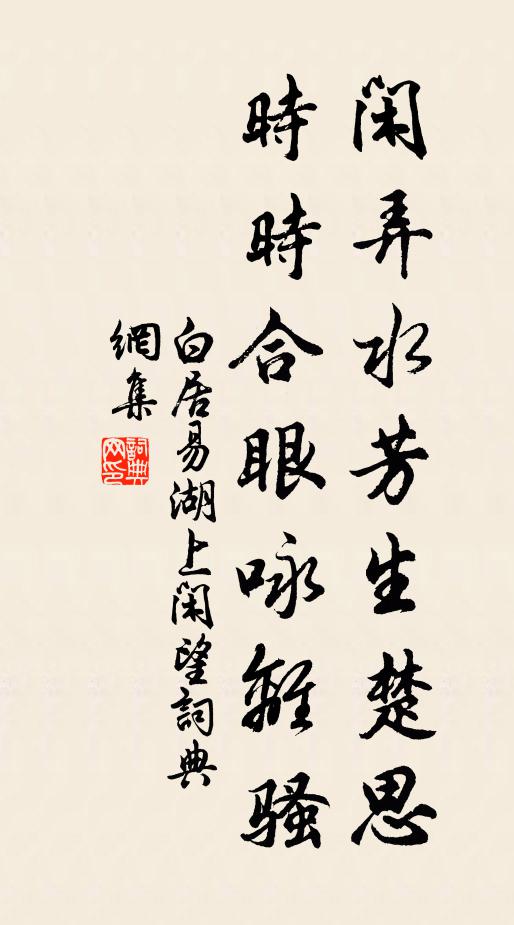 闲弄水芳生楚思
時時合眼咏離騷
白居易湖上闲望詞典
網集
詞典
网印